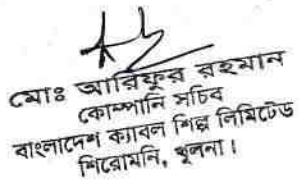 মোঃ আরিফুর রহমান
কোম্পানি সচিব
বাংলাদেশ ক্যাবল শিল্প লিমিটেড
শিরোমনি, খুলনা।